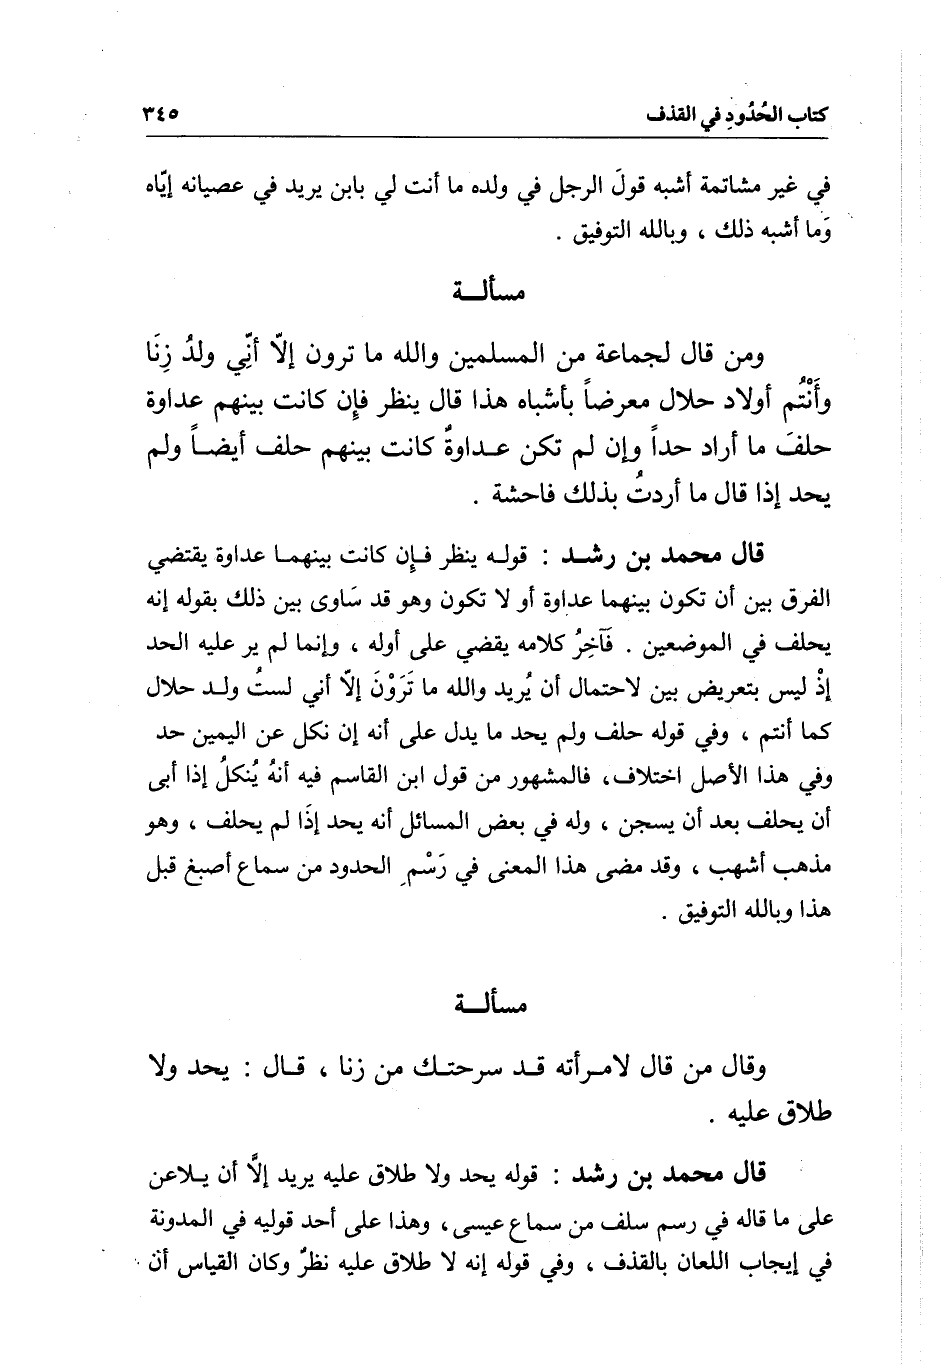 كتاب الحُدُودِ في القذف ٣٤٥
في غير مشاتمة أشبه قولَ الرجل في ولده ما أنت لي بابن يريد في عصيانه إيّاه
وَما أشبه ذلك ، وبالله التوفيق .
مسألة
ومن قال لجماعة من المسلمين والله ما ترون إلّا أنّي ولدُ زِنَا
وأَنْتُم أولاد حلال معرضاً بأشباه هذا قال ينظر فإن كانت بينهم عداوة
حلفَ ما أراد حداً وإن لم تكن عداوةٌ كانت بينهم حلف أيضاً ولم
يحد إذا قال ما أردتُ بذلك فاحشة .
قال محمد بن رشد : قوله ينظر فإن كانت بينهما عداوة يقتضي
الفرق بين أن تكون بينهما عداوة أو لا تكون وهو قد سَاوى بين ذلك بقوله إنه
يحلف في الموضعين . فَآخِرُ كلامه يقضي على أوله ، وإنما لم ير عليه الحد
إذْ ليس بتعريض بين لاحتمال أن يُريد والله ما تَرَوْنَ إلّا أني لستُ ولد حلال
كما أنتم ، وفي قوله حلف ولم يحد ما يدل على أنه إن نكل عن اليمين حد
وفي هذا الأصل اختلاف، فالمشهور من قول ابن القاسم فيه أنهُ يُنكلُ إذا أبى
أن يحلف بعد أن يسجن ، وله في بعض المسائل أنه يحد إذَا لم يحلف ، وهو
مذهب أشهب ، وقد مضى هذا المعنى في رَسْمِ الحدود من سماع أصبغ قبل
هذا وبالله التوفيق .
مسألة
وقال من قال لامرأته قد سرحتك من زنا ، قال : يحد ولا
طلاق عليه .
قال محمد بن رشد : قوله يحد ولا طلاق عليه يريد إلاَّ أن يلاعن
على ما قاله في رسم سلف من سماع عيسى، وهذا على أحد قوليه في المدونة
في إيجاب اللعان بالقذف ، وفي قوله إنه لا طلاق عليه نظرٌ وكان القياس أن